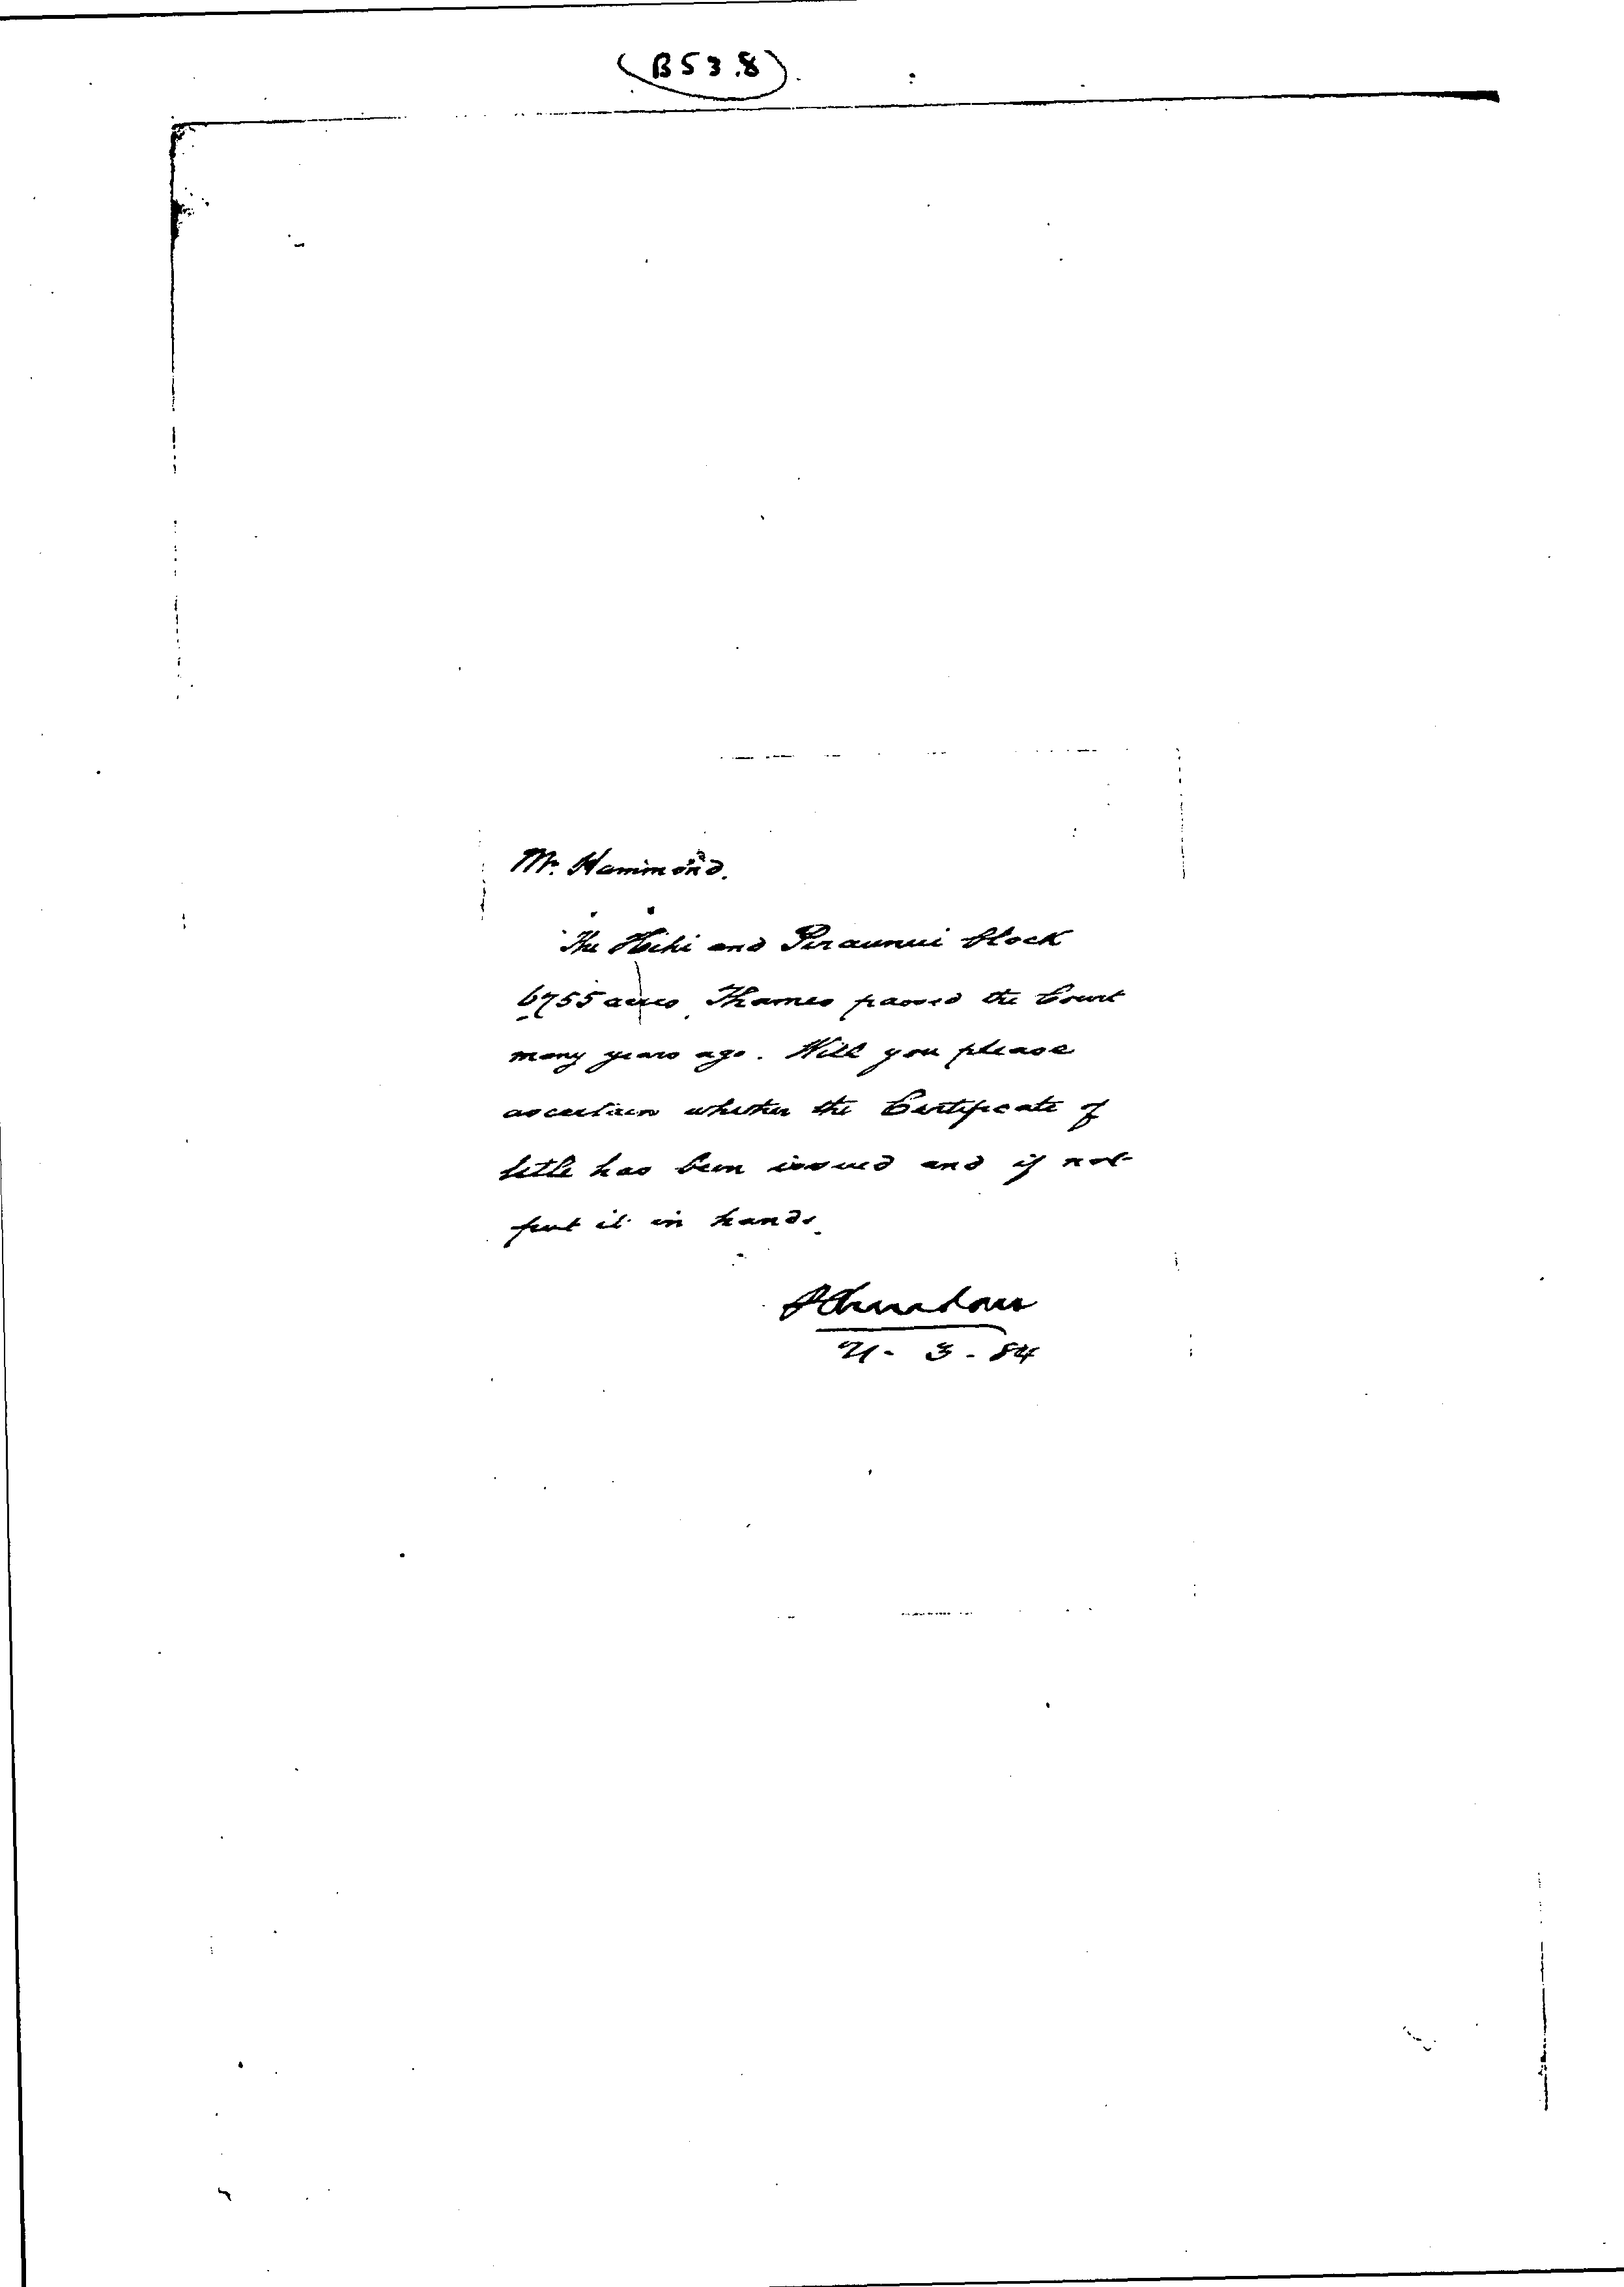 (B53.8)
Mr. Hammond.
The Hihi and Piraunui block
6755 acres Thames passed the Court
many years ago. Will you please
ascertain whether the Certificate of
title has been issued and if not
put it in hand.
21-3-84